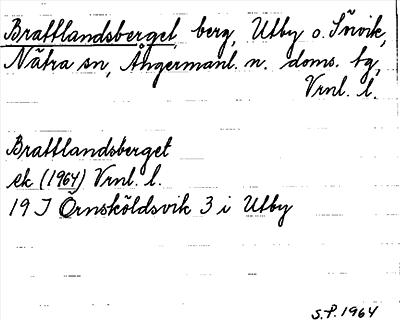 Brattlandsberget, berg, Utby o. Sörvik,
Nätra sn, Ångermanl. n. doms. tg,
Vrnl. l.
Brattlandsberget
ek (1964) Vrnl. l.
19 J Örnsköldsvik 3 i Utby
S.P. 1964